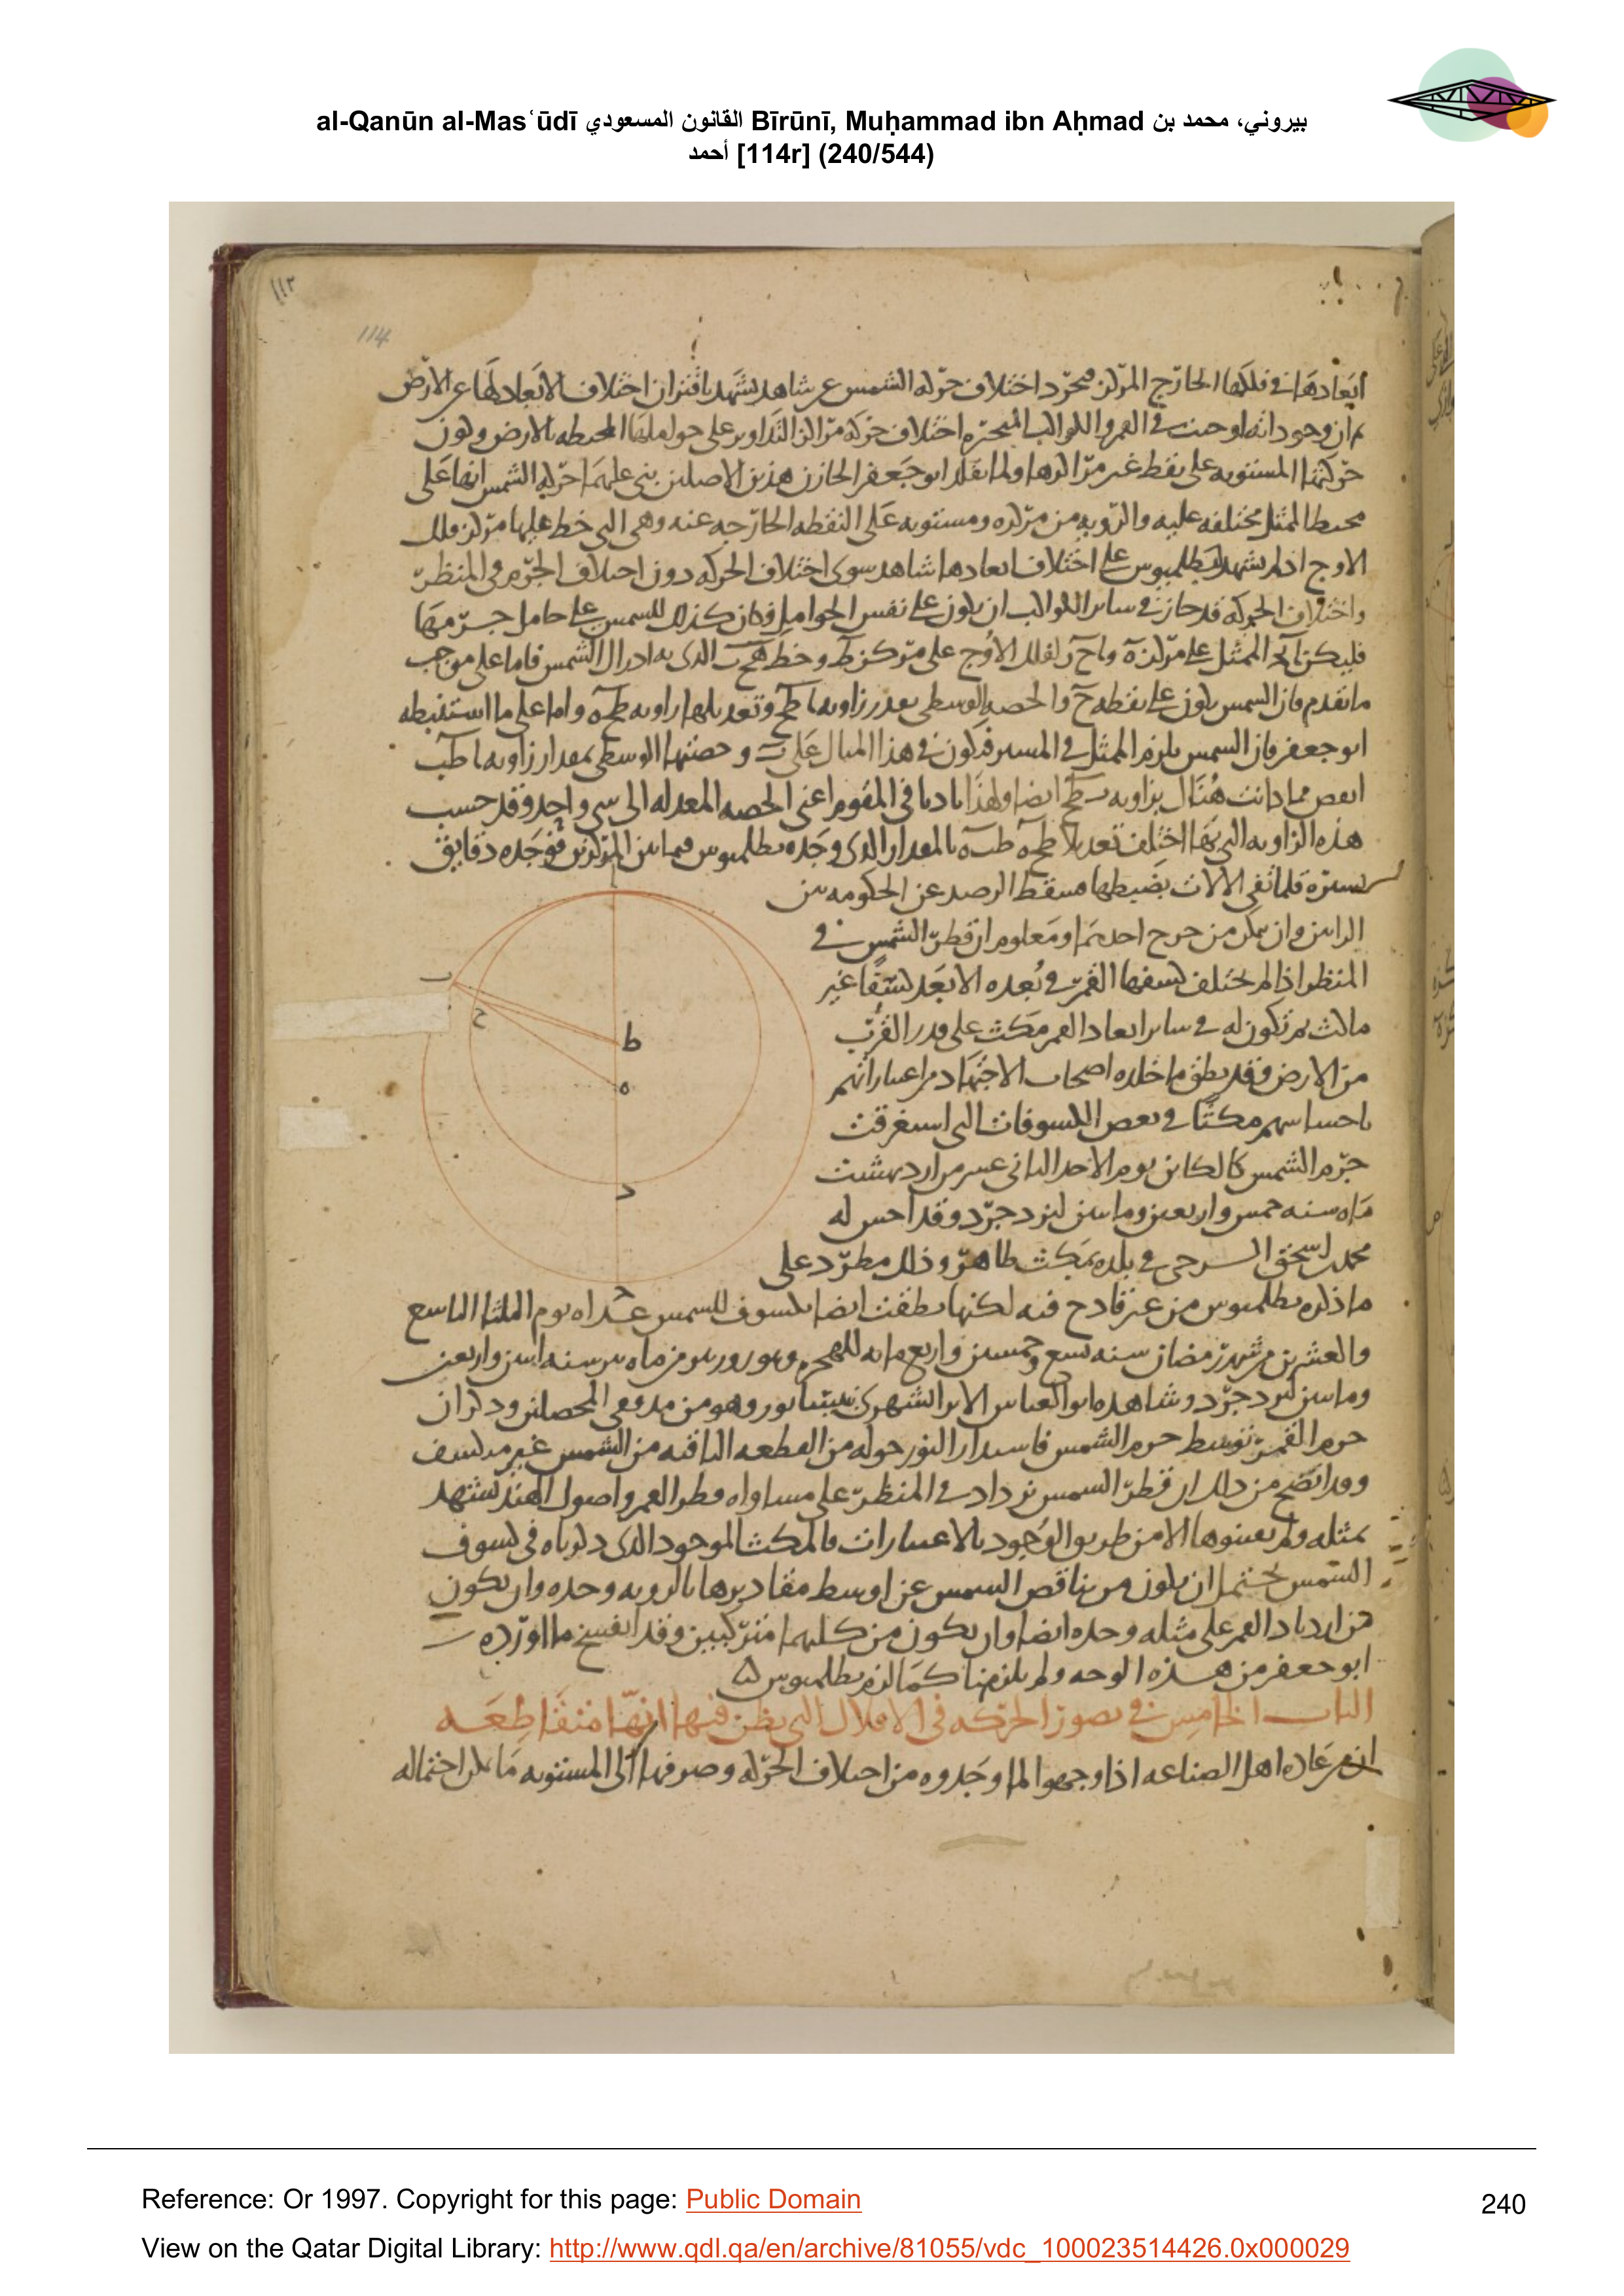 al-Qanūn al-Masʿūdī القانون المسعودي Bīrūnī, Muḥammad ibn Aḥmad بيروني، محمد بن
أحمد [114r] (240/544)
١١٣
114
ابعادها في فلكها الخارج المركز مجرد اختلاف حركه الشمس عن شاهد يشهد باقتران اختلاف الابعاد لها عن الارض
حركتها المستويه على نقط غير مراكزها ولما نقل ابو جعفر الخازن هذين الاصلين بنى عليهما حركه الشمس انها على
محيط الممثل مختلفه عليه والرويه من مركزه ومستويه على النقطه الخارجه عنه وهي التي خط عليها مركز فلك
الاوج اذ لم يشهد لبطلميوس على اختلاف ابعادها شاهد سوى اختلاف الحركه دون اختلاف الجرم في المنظر
واختلاف الحركه قد جاز في ساير الكواكب ان يكون على نفس الحوامل فكان كذلك للشمس على حامل جرمها
فليكن الممثل على مركز ه و ا ح د لفلك الاوج على مركز ط وخط ه ح ب الذي به ادراك الشمس فاما على موجب
ما تقدم فان الشمس يكون على نقطه ح والحصه الوسطى بقدر زاويه ا ط ح وتعديلها زاويه ط ح ه واما على ما استنبطه
ابو جعفر فان الشمس يلزم الممثل في المسير فيكون في هذا المثال على ب وحصتها الوسطى بمقدار زاويه ا ط ب
انقص مما كانت هناك بزاويه ب ط ح ايضا ولهذا في المقوم اعني الحصه المعدله الى شي واحد وقد حسب
هذه الزاويه التي بها اختلف تعديلا ط ح ه ط ب ه بالمقدار الذي وجده بطلميوس فيما بين المركزين فوجده دقايق
يسيره قلما تفي الالات بضبطها فسقط الرصد عن الحكومه بين
الرايين وان تمكن من جرح احدهما ومعلوم ان قطر الشمس في
المنظر اذا لم يختلف كسفها القمر في بعده الابعد كسفا غير
ماكث ثم تكون له في ساير ابعاد القمر مكث على قدر القرب
من الارض وقد نطق ما خلده اصحاب الاجتهاد من اعتباراتهم
باحساسهم مكثا في بعض الكسوفات التي استغرقت
جرم الشمس كالكاين يوم الاحد الثاني عشر من ارديبهشت
ماه سنه خمس واربعين ومايتين ليزدجرد وقد احس له
محمد بن اسحق السرخسي في بلده بمكث ظاهر وذلك مطرد على
ما ذكره بطلميوس من غير قادح فيه لكنها نطقت ايضا بكسوف للشمس غداه يوم الثلثا التاسع
والعشرين من شهر رمضان سنه تسع وخمسين وماه سنه اثنين واربعين
ومايتين ليزدجرد وشاهده ابو العباس الايرانشهري بنيسابور وهو من المحصلين وذكر ان
جرم القمر توسط جرم الشمس فاستدار النور حوله من القطعه الباقيه من الشمس غير منكسف
وقد اتضح من ذلك ان قطر الشمس يزداد في المنظر على مساواه قطر القمر واصول الهند تشهد
بمثله ولم يعينوها الا من طريق الوجود بالاعتبارات فالمكث الموجود الذي ذكرناه في كسوف
الشمس يحتمل ان يكون من تناقص الشمس عن اوسط مقاديرها بالرويه وحده وان يكون
من ازدياد القمر على مثله وحده ايضا وان يكون من كليهما متركبين وقد انفسخ ما اورده
ابو جعفر من هذه الوجه ولم يلزمنا كما لزم بطلميوس
الباب الخامس في تصور الحركه في الافلاك التي يظن فيها انها متقاطعه
ان من عاده اهل الصناعه اذا وجهوا لما وجدوه من اختلاف الحركه وصرفها الى المستويه ما يمكن احتماله
ا
ب
ح
ط
ه
د
Reference: Or 1997. Copyright for this page: Public Domain
240
View on the Qatar Digital Library: http://www.qdl.qa/en/archive/81055/vdc_100023514426.0x000029